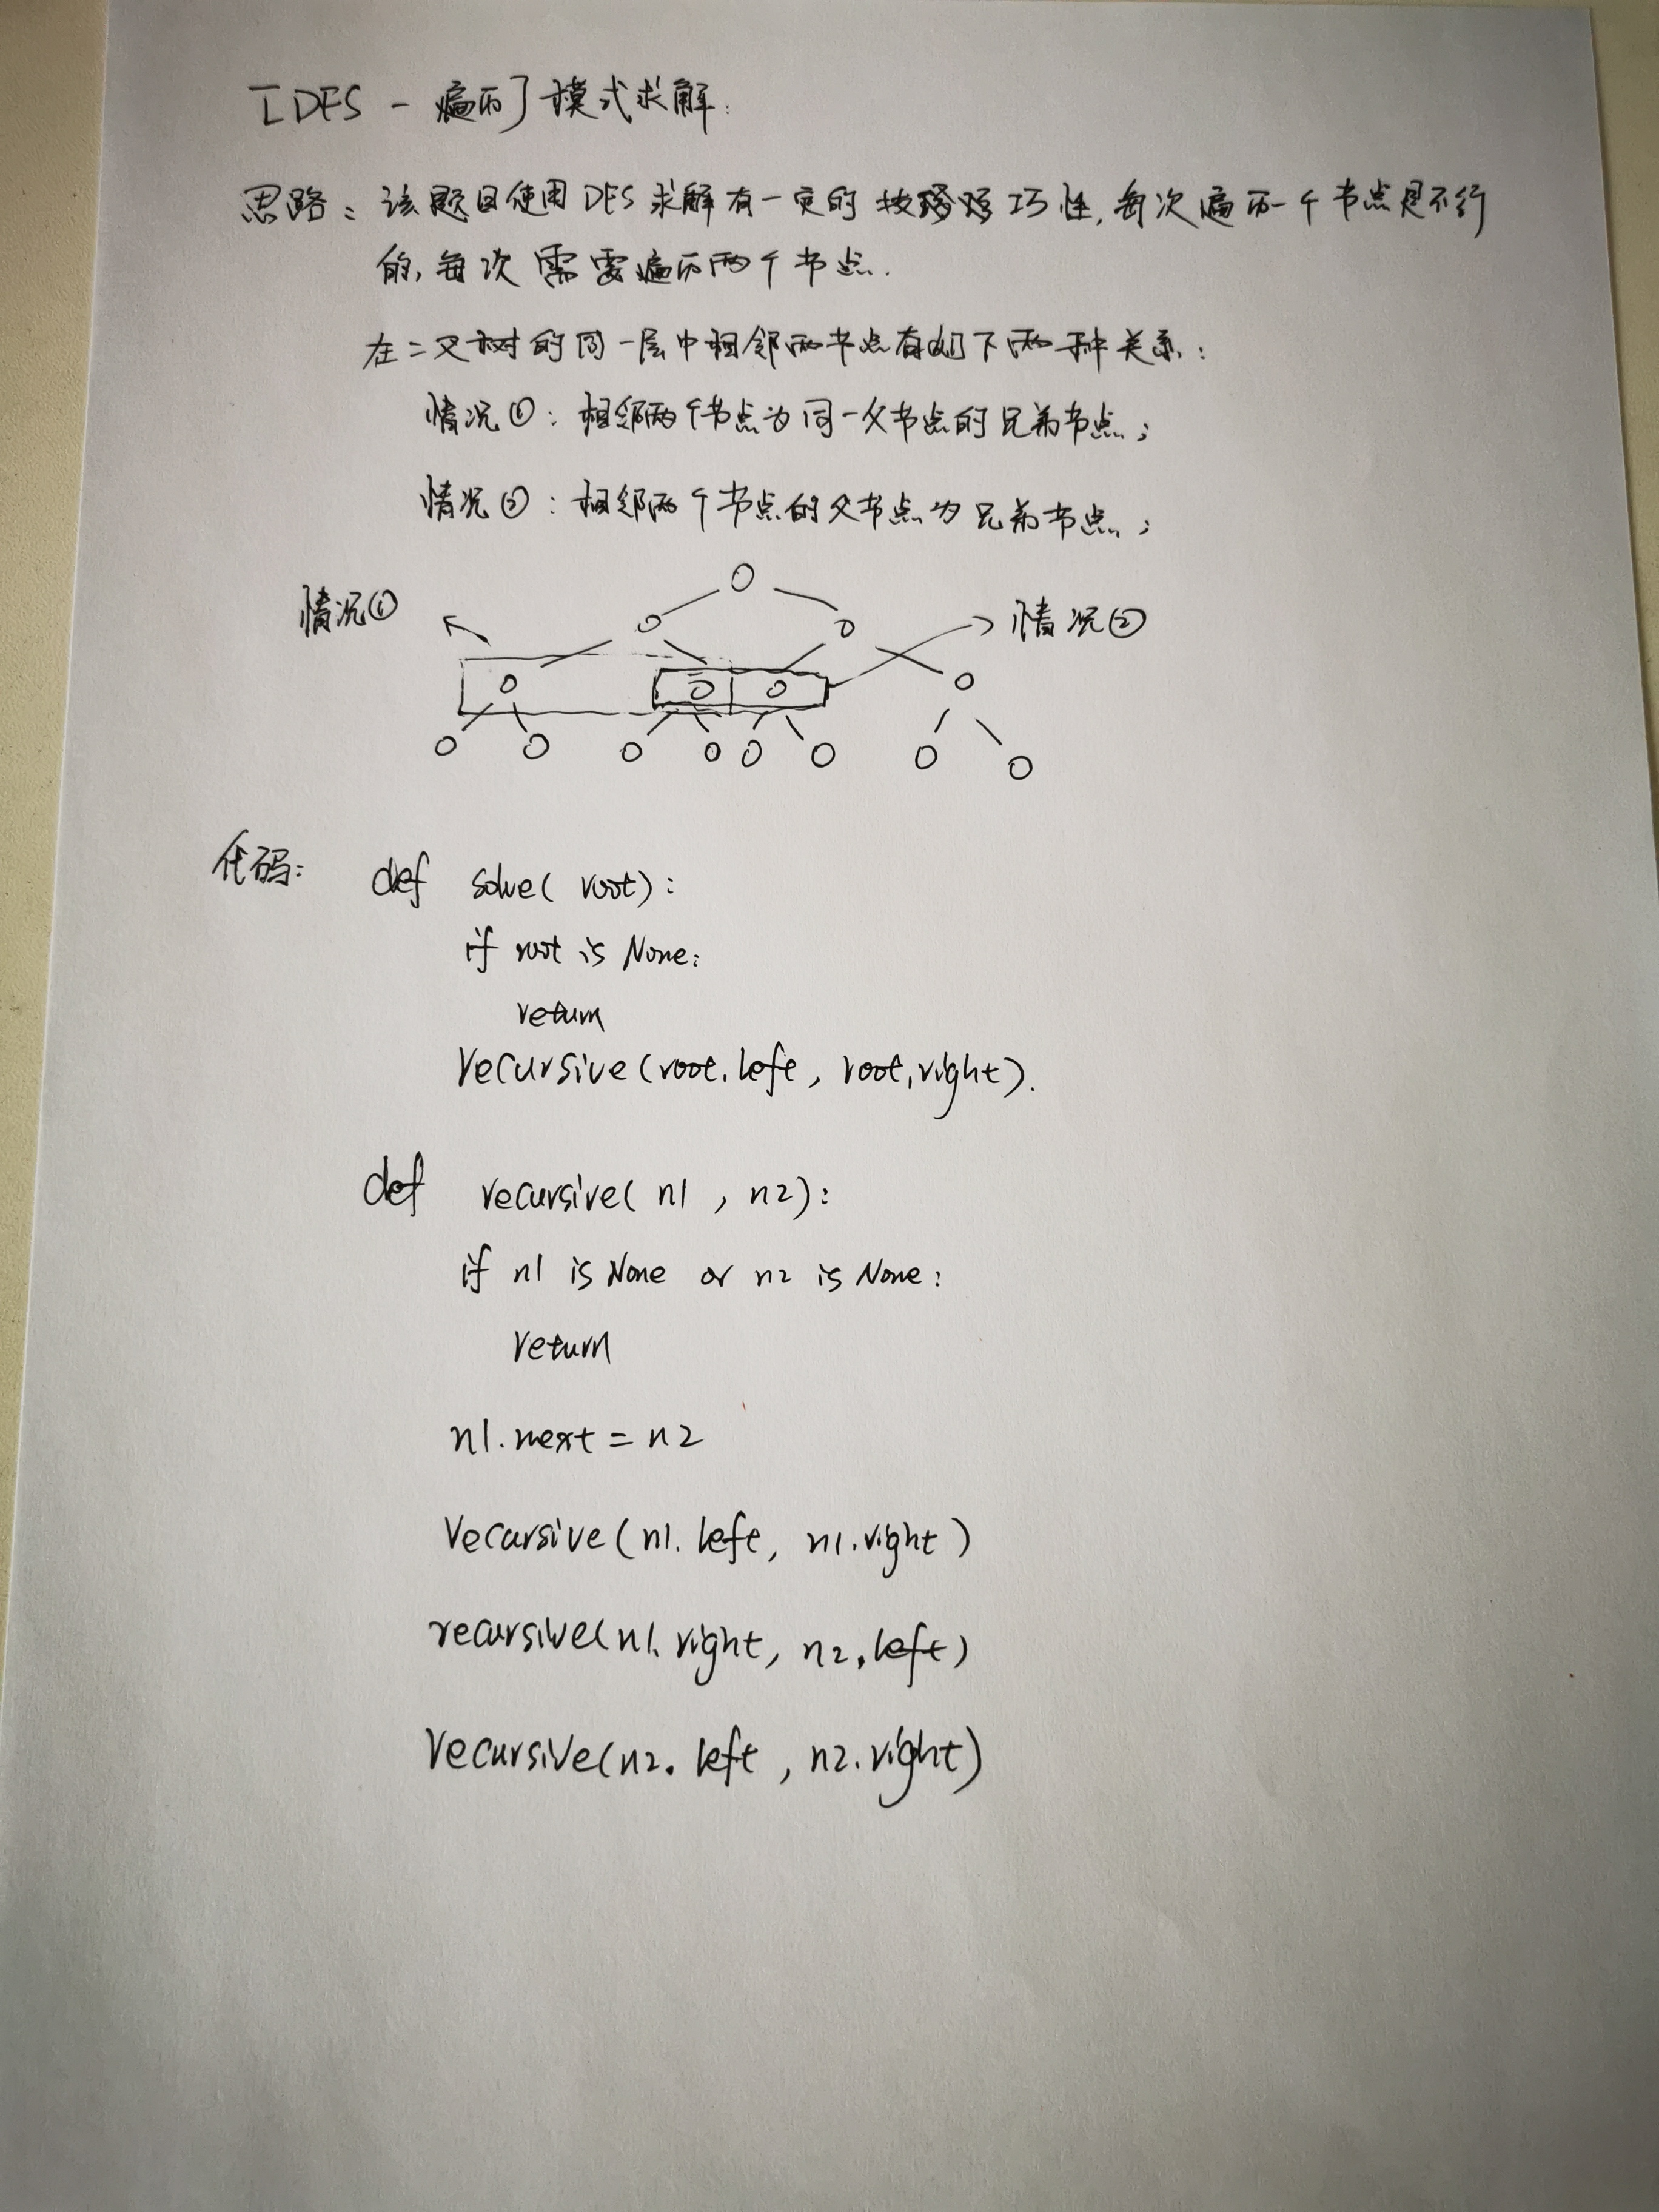 [DFS - 遍历] 模式求解:
思路: 该题目使用DFS求解有一定的技巧性, 每次遍历一个节点是不行
的, 每次需要遍历两个节点.
在二叉树的同一层中相邻两节点有如下两种关系:
情况①: 相邻两个节点为同一父节点的兄弟节点;
情况②: 相邻两个节点的父节点为兄弟节点;
情况①
情况②
代码:
def solve( root):
if root is None:
return
recursive(root.left, root.right).
def recursive( n1 , n2):
if n1 is None or n2 is None:
return
n1.next = n2
recursive(n1.left, n1.right)
recursive(n1.right, n2.left)
recursive(n2.left , n2.right)